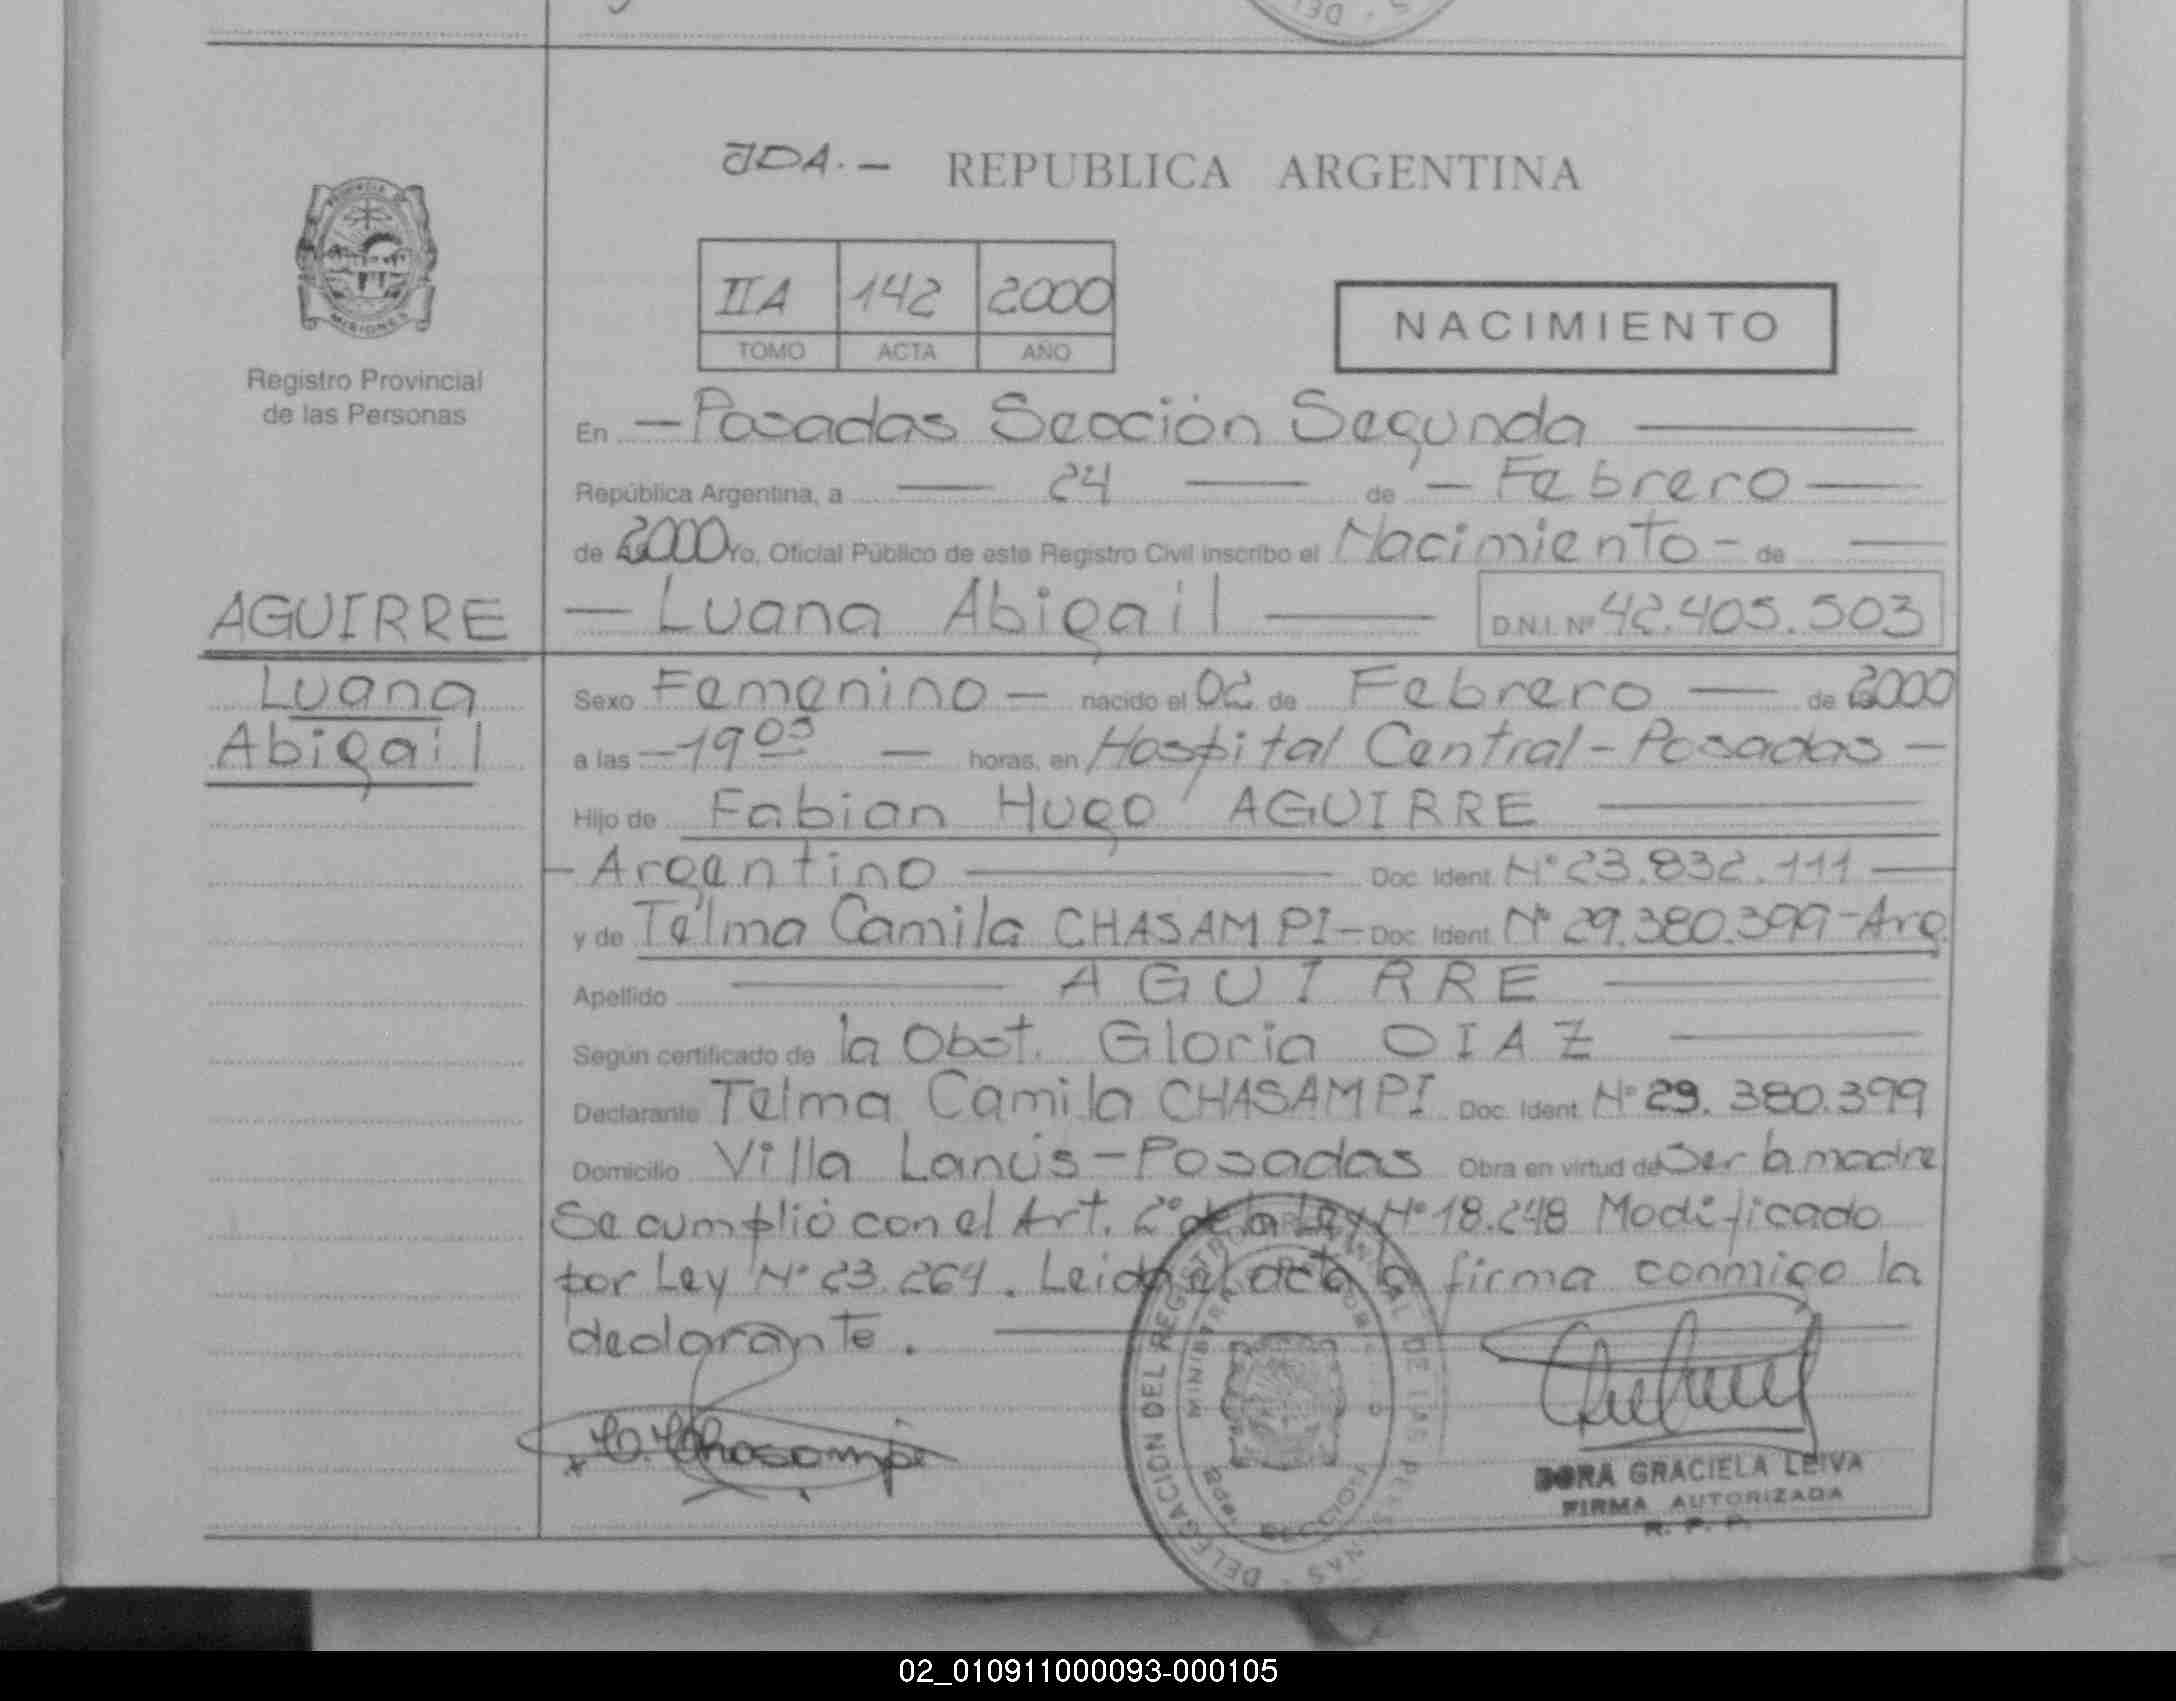 JDA.- REPUBLICA ARGENTINA
MISIONES
Registro Provincial
de las Personas
IIA 142 2000
TOMO ACTA AÑO
NACIMIENTO
En - Posadas Sección Segunda
República Argentina, a 24 de - Febrero
de 2000 Yo, Oficial Público de este Registro Civil inscribo el Nacimiento - de
AGUIRRE
Luana
Abigail
- Luana Abigail D.N.I. Nº 42.405.503
Sexo Femenino - nacido el 02 de Febrero de 2000
a las - 19 05 - horas, en Hospital Central - Posadas -
Hijo de Fabian Hugo AGUIRRE
- Argentino Doc. Ident. Nº 23.832.111
y de Telma Camila CHASAMPI - Doc. Ident. Nº 29.380.399 - Arg.
Apellido AGUIRRE
Según certificado de la Obst. Gloria DIAZ
Declarante Telma Camila CHASAMPI Doc. Ident. Nº 29.380.399
Domicilio Villa Lanús - Posadas Obra en virtud de Ser la madre
Se cumplió con el Art. 2º de la Ley Nº 18.248 Modificado
por Ley Nº 23.264. Leida el acta la firma conmigo la
declarante.
DELEGACION DEL REGISTRO PROVINCIAL DE LAS PERSONAS
DORA GRACIELA LEIVA
FIRMA AUTORIZADA
R. P. P.
02_010911000093-000105